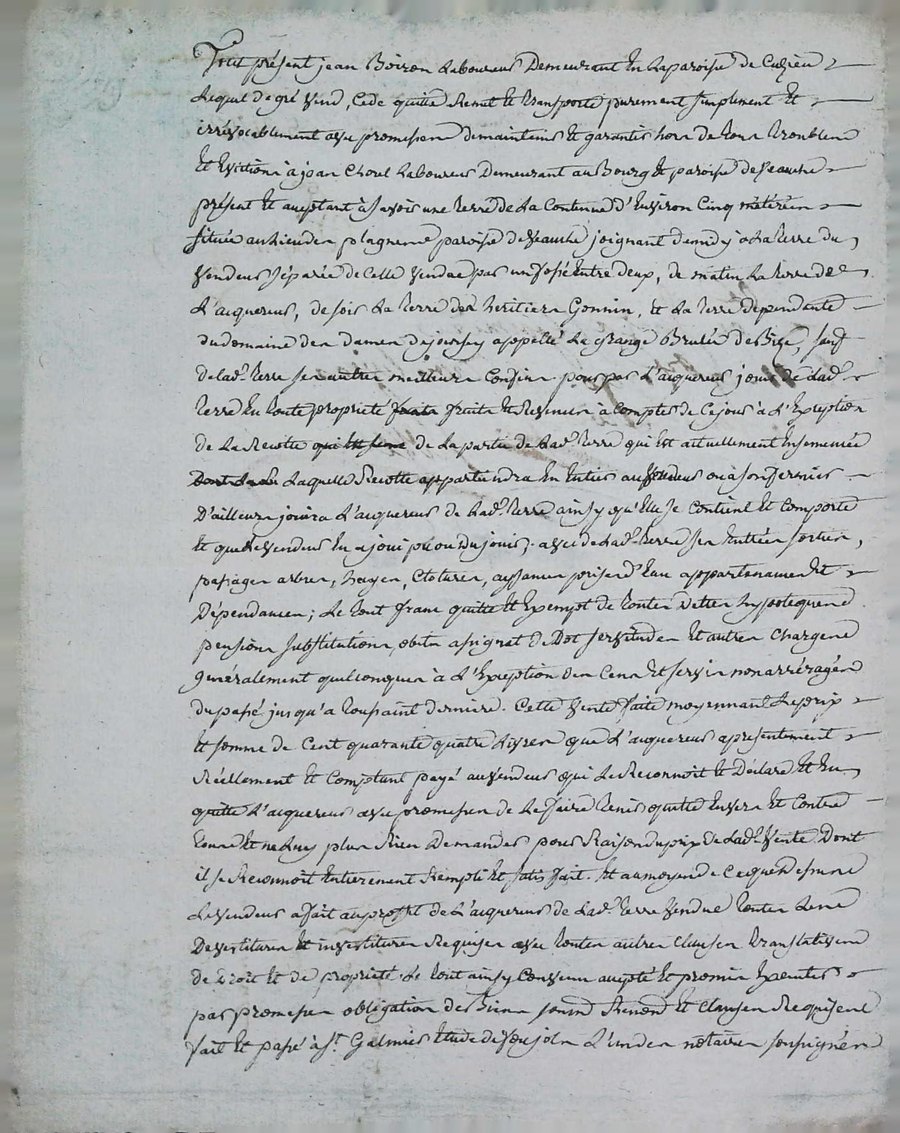 Fut présent jean Boiron Laboureur Demeurant En La paroise de Cuzieu
Lequel de gré vend, Cede quitte Remet Et transporte purement simplement Et
irrévocablement avec promesses de maintenir Et garantir hors de tous troubles
Et Evictions à jean Chorel Laboureur Demeurant au Bourg Et paroise de veauche
présent Et aceptant àsavoir une terre de La Contenue d'Environ Cinq métérées
située au Lieu des plagnes paroise de veauche joignant de midy à La terre du
vendeur séparée de Celle vendue par un fossé Entre deux, de matin La terre de
L'acquereur, de soir La terre des heritiers Gonnin, Et La terre dependante
du domaine des dames de jourcey appellé La grange Brulée de Bise, sauf
de lad.e terre ses autres meilleurs Confins pour par L'acquereur jouir de Lad.e
terre En toute proprieté fruits Et Revenus à Compter de Ce jour à L'Exception
de La Recolte qui Est seme de La partie de Lad.e terre qui Est actuellement Ensemencée
Dont La Laquelle Recolte appartiendra En Entier au vendeur ou à son fermier
D'ailleurs jouira L'acquereur de Lad.e terre ainsy qu'Elle se Contient Et Comporte
Et que Le vendeur En a joui pu ou du jouir; avec de Lad.e terre ses Entrées sorties,
passages arbres, hayes, Clotures, aysances prises d'Eau appartenances Et
Dépendances; Le tout franc quitte Et Exempt de toutes dettes hypoteques
pensions substitutions, obits assignat de Dot servitudes Et autres Charges
généralement quelconques à L'Exception des Cens Et servis non arréragés
du passé jusqu'a toussaint derniere. Cette vente faite moyennant Le prix
Et somme de Cent quarante quatre Livres que L'acquereur a presentement
Réellement Et Comptant payé au vendeur qui Le Reconnoit Et Déclare Et En
quitte L'acquereur avec promesses de Le faire tenir quitte Envers Et Contre
tous Et ne Luy plus Rien Demander pour Raison du prix de Lad.e vente Dont
il se Reconnoit Entierement Rempli Et satisfait. Et au moyen de Ce que Dessus
Le vendeur a fait au profit de L'acquereur de Lad.e terre vendue toutes Les
Devestitures Et investitures Requises avec toutes autres Clauses translatives
de Droit Et de proprieté. Le tout ainsy Convenu accepté Et promis Executer
par promesses obligation de Biens soumis Renonc Et Clauses Requises
fait Et passé à S.t Galmier Etude de L'un des notaires soussignés